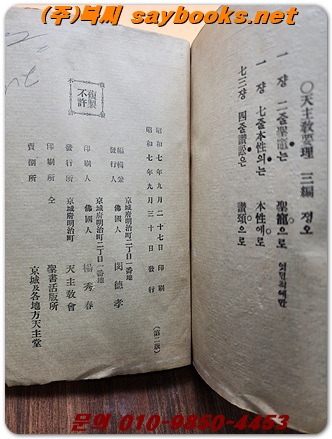 (주)북씨 saybooks.net
○天主敎要理 三編 정오
一 쟝 二줄聖寵는 聖寵으로
一 쟝 七줄本性의는 本性에로
七三쟝 四줄讃訟은 讃頌으로
複製
不許
昭和七年九月二十七日 印刷
昭和七年九月三十日 發行 (第二版)
京城府明治町二丁目一番地
編輯兼
發行人 佛國人 閔德孝
京城府明治町二丁目一番地
印刷人 佛國人 楊秀春
發行所 明治町 天主敎會
印刷所 仝 聖書活版所
賣捌所 京城及各地方天主堂
문의 010-9850-4453